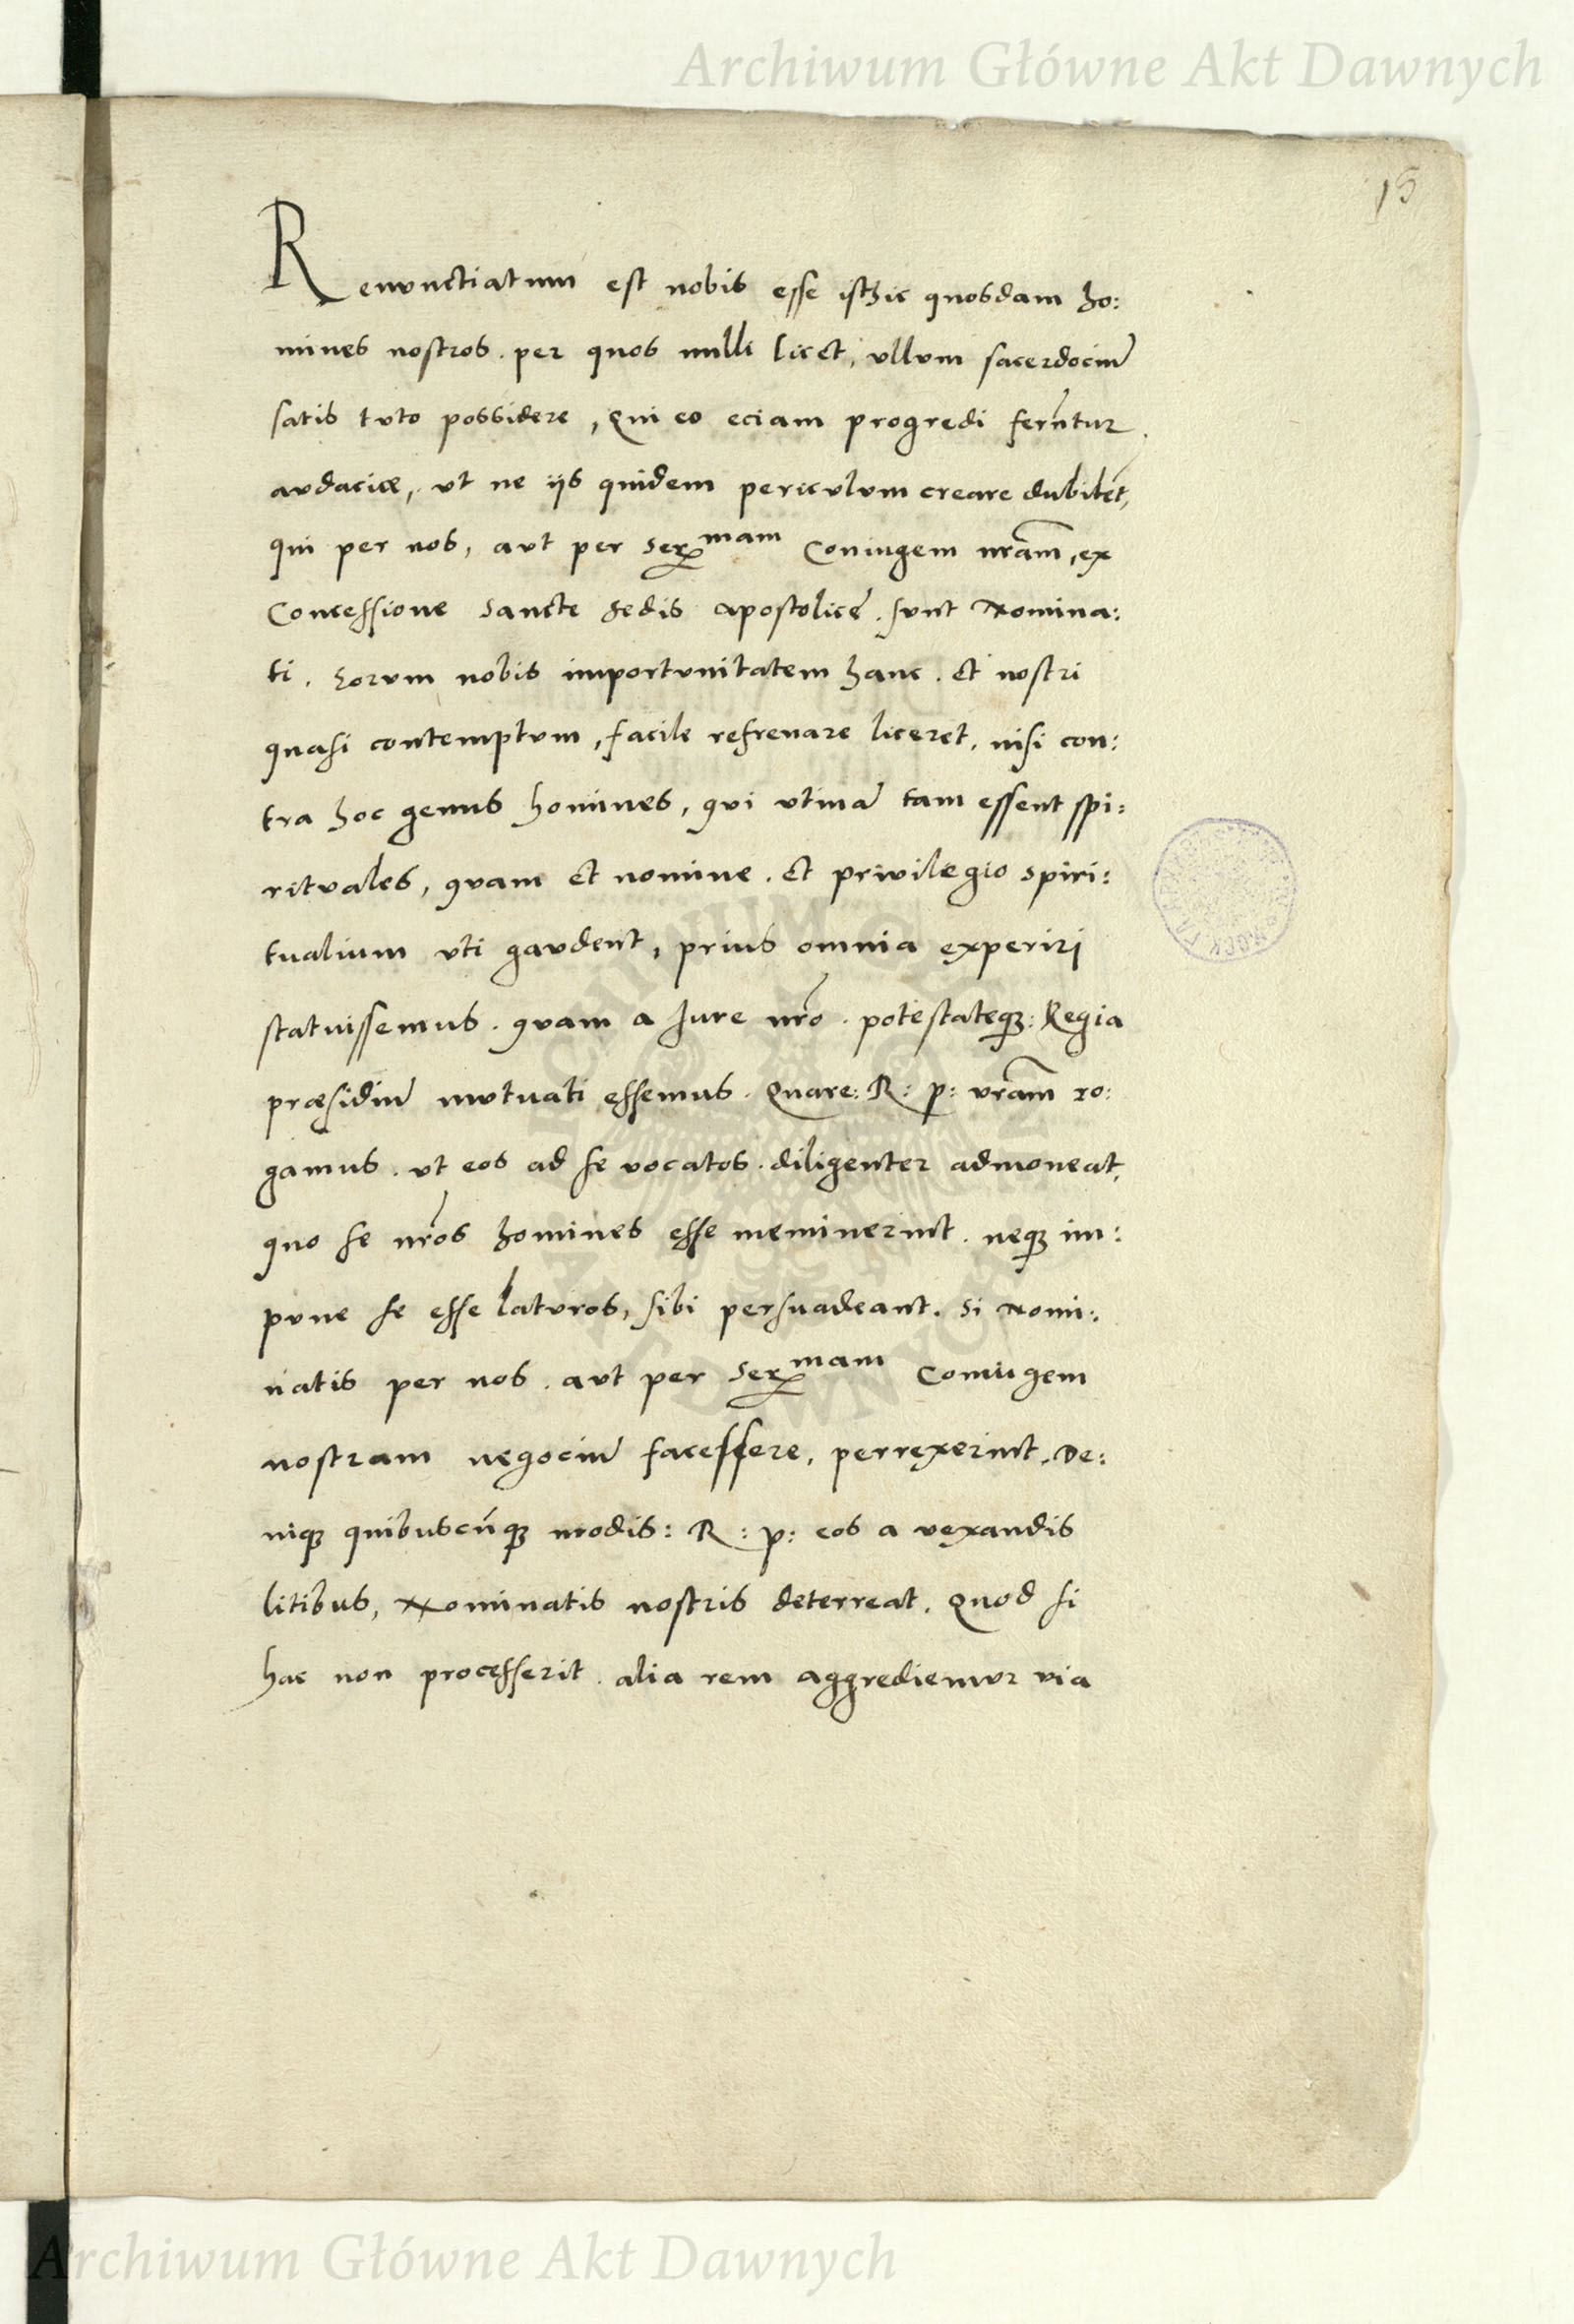 Archiwum Główne Akt Dawnych
15
Renunctiatum est nobis esse isthic quosdam ho:
mines nostros . per quos nulli licet, ullum sacerdociũ
satis tuto possidere, Qui eo eciam progredi ferũtur
audaciæ, ut ne ijs quidem periculum creare dubitẽt,
qui per nos, aut per Serᵐᵃᵐ Coniugem nr̃am, ex
Concessione Sancte Sedis apostolicę . sunt Nomina:
ti . Eorum nobis importunitatem hanc . et nostri
quasi contemptum, facile refrenare liceret, nisi con:
tra hoc genus homines, qui utinã tam essent spi:
rituales, quam et nomine . et privilegio spiri:
tualium uti gaudent, prius omnia experiri
statuissemus . quam a Jure nr̃o . potestateq3: Regia
præsidiũ mutuati essemus . Quare: R: p: vr̃am ro:
gamus . ut eos ad se vocatos . diligenter admoneat,
quo se nr̃os homines esse meminerint . neq3 im:
pune se esse laturos, sibi persuadeant . Si Nomi:
natis per nos . aut per Serᵐᵃᵐ Coniugem
nostram negociũ facessere, perrexerint, De:
niq3 quibuscũq3 modis: R: p: eos a vexandis
litibus, Nominatis nostris deterreat . Quod si
hac non processerit . alia rem aggrediemur via
Archiwum Główne Akt Dawnych